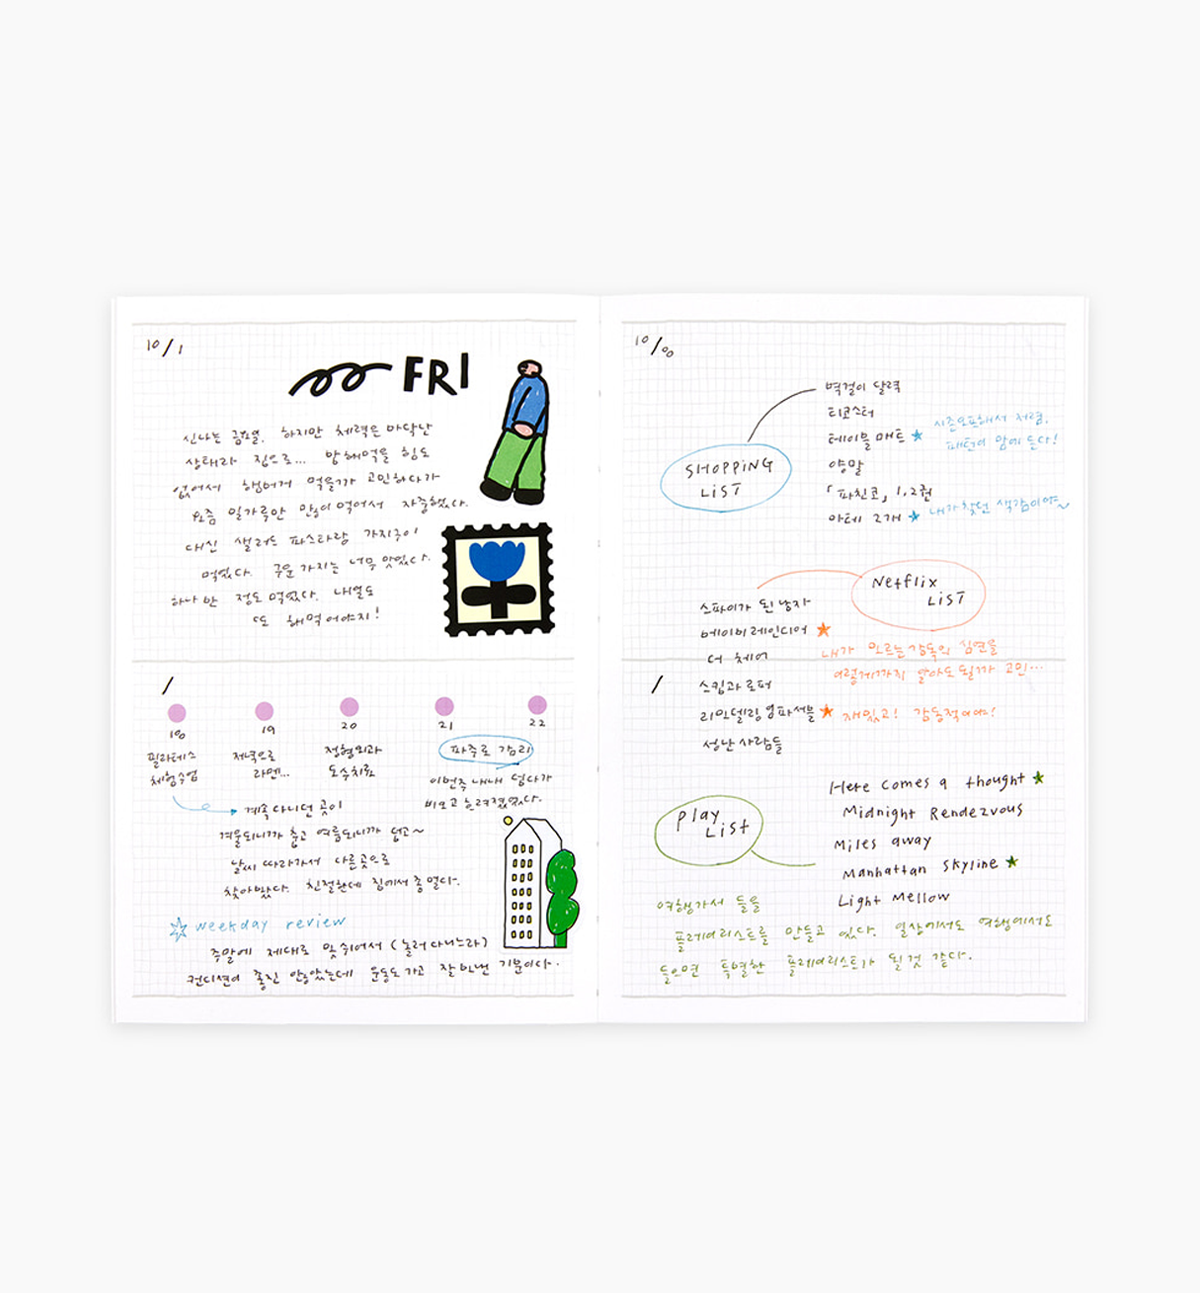 10/1
FRI
신나는 금요일. 하지만 체력은 바닥난
상태라 집으로... 밥해먹을 힘도
없어서 햄버거 먹을까 고민하다가
요즘 밀가루만 많이 먹어서 자중했다.
대신 샐러드 파스타랑 가지구이
먹었다. 구운 가지는 너무 맛있다.
하나 반 정도 먹었다. 내일도
또 해먹어야지!
/
18 19 20 21 22
필라테스
체험수업
저녁으로
라멘...
정형외과
도수치료
파주로 갈까
이번주 내내 덥다가
비오고 느려졌었다.
계속 다니던 곳이
겨울되니까 춥고 여름되니까 덥고~
날씨 따라가서 다른곳으로
찾아봤다. 친절한데 집에서 좀 멀다.
weekday review
주말에 제대로 못쉬어서 (놀러다니느라)
컨디션이 좋진 않았는데 운동도 가고 잘 보낸 기분이다.
10/00
SHOPPING
LIST
벽걸이 달력
티코스터
테이블 매트 ★ 시즌오프해서 저렴.
패턴이 맘에 든다!
양말
「파친코」 1,2권
아테 2개 ★ 내가 찾던 색감이야~
Netflix
LIST
스파이가 된 남자
베이비 레인디어 ★
더 체어
내가 모르는 감독의 심연을
이렇게까지 알아도 될까 고민...
/
스킵과 로퍼
리인델링 열파서블 ★ 재밌고! 감동적이야!
성난 사람들
Play
List
Here comes a thought ★
Midnight Rendezvous
Miles away
Manhattan Skyline ★
Light Mellow
여행가서 들을
플레이리스트를 만들고 있다. 일상에서도 여행에서도
들으면 특별한 플레이리스트가 될것 같다.